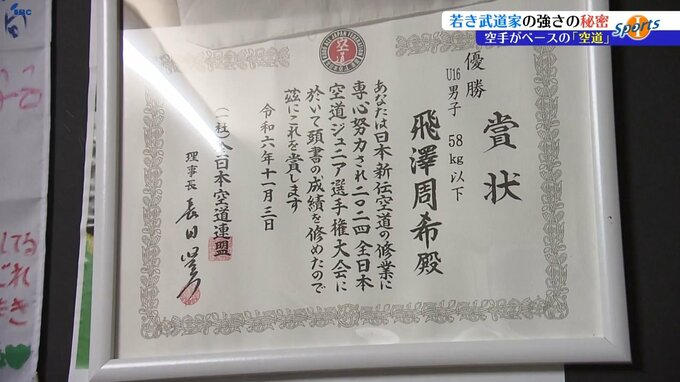 SBC
若き武道家の強さの秘密
空手がベースの「空道」
Sports
賞状
優勝
U16男子 58kg以下
飛澤周希殿
あなたは日本新伝空道の修業に
専心努力され二〇二四全日本
空道ジュニア選手権大会に
於いて頭書の成績を修めたので
茲にこれを賞します
令和六年十一月三日
(一社)全日本空道連盟
理事長
空道